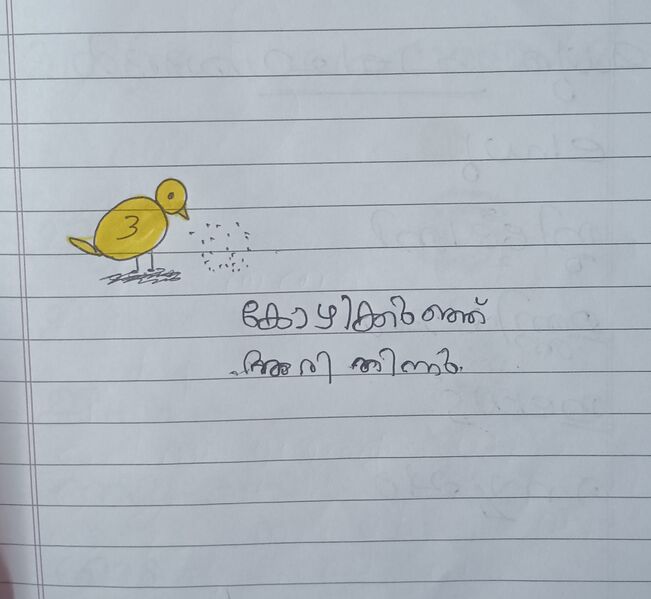 3
കോഴിക്കുഞ്ഞ്
അരി തിന്നു.